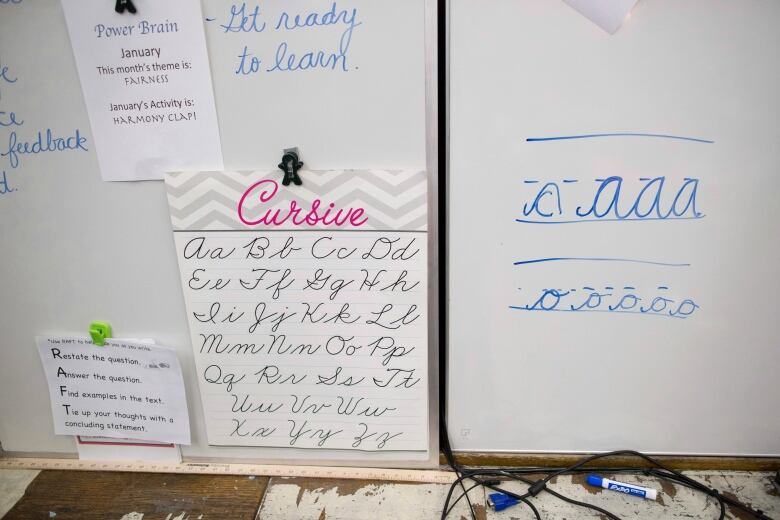 Power Brain
January
This month's theme is:
FAIRNESS
January's Activity is:
HARMONY CLAP!
- Get ready
to learn.
feedback
Cursive
Aa Bb Cc Dd
Ee Ff Gg Hh
Ii Jj Kk Ll
Mm Nn Oo Pp
Qq Rr Ss Tt
Uu Vv Ww
Xx Yy Zz
Restate the question.
Answer the question.
Find examples in the text.
Tie up your thoughts with a
concluding statement.
a a a a
o o o o o
EXPO